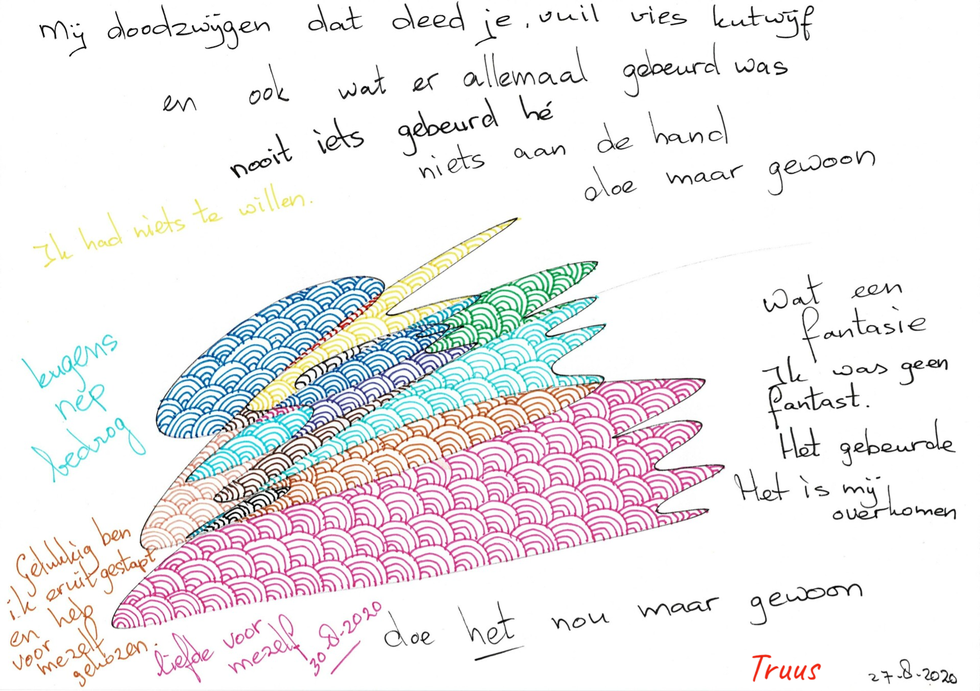 Mij doodzwijgen dat deed je, vuil vies kutwijf
en ook wat er allemaal gebeurd was
nooit iets gebeurd hé
niets aan de hand
doe maar gewoon
Ik had niets te willen.
leugens
nep
bedrog
wat een
fantasie
Ik was geen
fantast.
Het gebeurde
Het is mij
overkomen
Gelukkig ben
ik eruit gestapt
en heb
voor
mezelf
gekozen.
liefde voor
mezelf
30-8-2020
doe het nou maar gewoon
Truus
27-8-2020